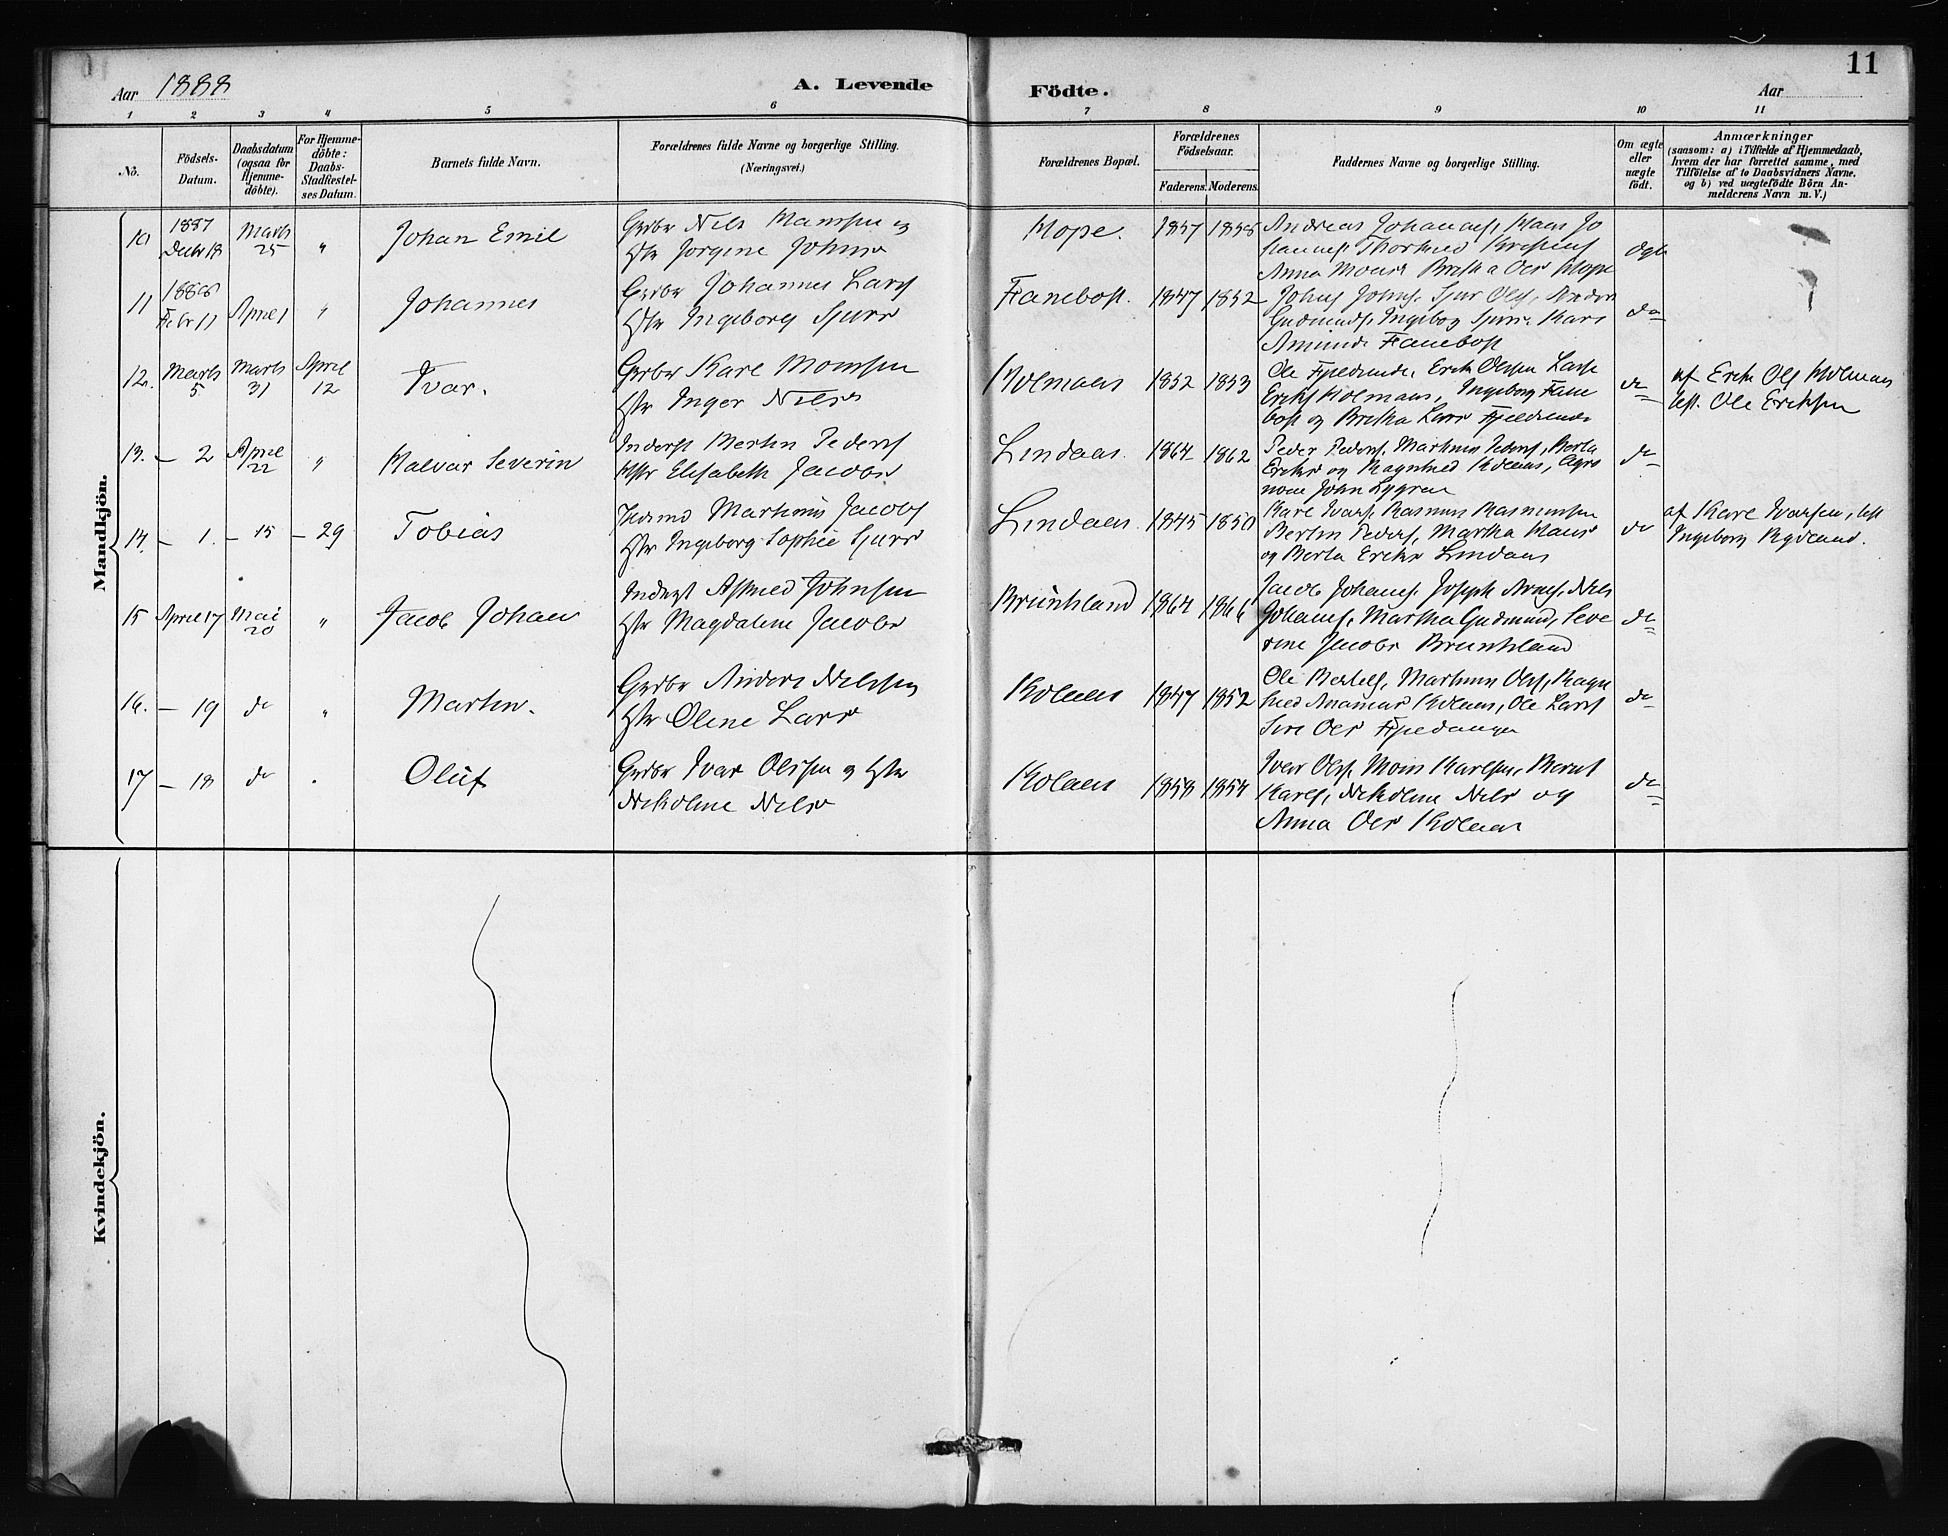 11
Aar 1888
A. Levende Födte.
Aar
1 2 3 4 5 6 7 8 9 10 11
No.
Födsels-Datum.
Daabsdatum (ogsaa for Hjemmedöbte).
For Hjemmedöbte: Daabs-Stadfæstelses Datum.
Barnets fulde Navn.
Forældrenes fulde Navne og borgerlige Stilling.
(Næringsvei.)
Forældrenes Bopæl.
Forældrenes Födselsaar.
Faderens. Moderens.
Faddernes Navne og borgerlige Stilling.
Om ægte eller uægte födt.
Anmærkninger
(saasom: a) i Tilfælde af Hjemmedaab,
hvem der har forrettet samme, med
Tilföielse af to Daabsvidners Navne.
og b) ved uægtefödte Börn An-
melderens Navn m. V.)
Mandkjön.
10 1887 Decbr 18 Marts 25 " Johan Emil
Grdbr Nils Monssen og
Hstr Jorgine Johns
Hope. 1857 1858
Andreas Johannes, Hans Jo
Anna Hope
ægte
11 1888 Febr 11 April 1 " Johannes
Grdbr Johannes Lars
Hstr Ingeborg Sjurs
Fanebost. 1847 1852
Johns, Sjur Ols,
Gudmunds, Ingeborg Sjurs
Fanebost
do
12. Marts 5 Marts 31 April 12 Ivar.
Grdbr Kare Monsen
Hstr Inger Nils
Holmaas 1852 1853
Ole Fjeldsende, Erik Olssen Lasse
Eriks Holmaas, Ingeborg Fane
bost og Brita Lars Fjeldsende
do
af Erik Ols Holmaas
best. Ole Eriksen
13. – 2 April 22 " Halvar Severin
Inderst Bertin Peders
Hstr Elisabeth Jacobs
Lindaas. 1864 1862
Peder Peders, Martinus Peders, Berta
Eriks og Ragnhild Kolaas, Agro
nom John Lygren
do
14. – 1. – 15 – 29 Tobias
Martinus Jacobs
Hstr Ingeborg Sophie Sjurs
Lindaas. 1845 1850
Kare Ivars, Rasmus Rasmussen
Bertin Peders, Martha Hans
og Berta Eriks Lindaas
do
af Kare Ivarsen, best
Ingeborg Rydland.
15 April 17 Mai 20 " Jacob Johan
Inderst Johnsen
Hstr Magdalene Jacobs
Bruntland 1864 1866
Jacob Johans, Joseph Arnes, Nils
Johans, Martha Gudmund, Seve
rine Jacobs Bruntland
do
16. – 19 do " Martin.
Grdbr Anders Nilssen
Hstr Oline Lars
Kolaas 1847 1852
Ole Bertels, Martinus Ols, Ragn
hild Kolaas, Ole Lars
do
17 – 18 do . Oluf
Grdbr Ivar Olssen og Hstr
Nikoline Nils
Kolaas 1858 1854
Iver Ols, Mons Karlsen, Bernt
Karls, Nikoline Nils og
Anna Kolaas
do
Kvindekjön.